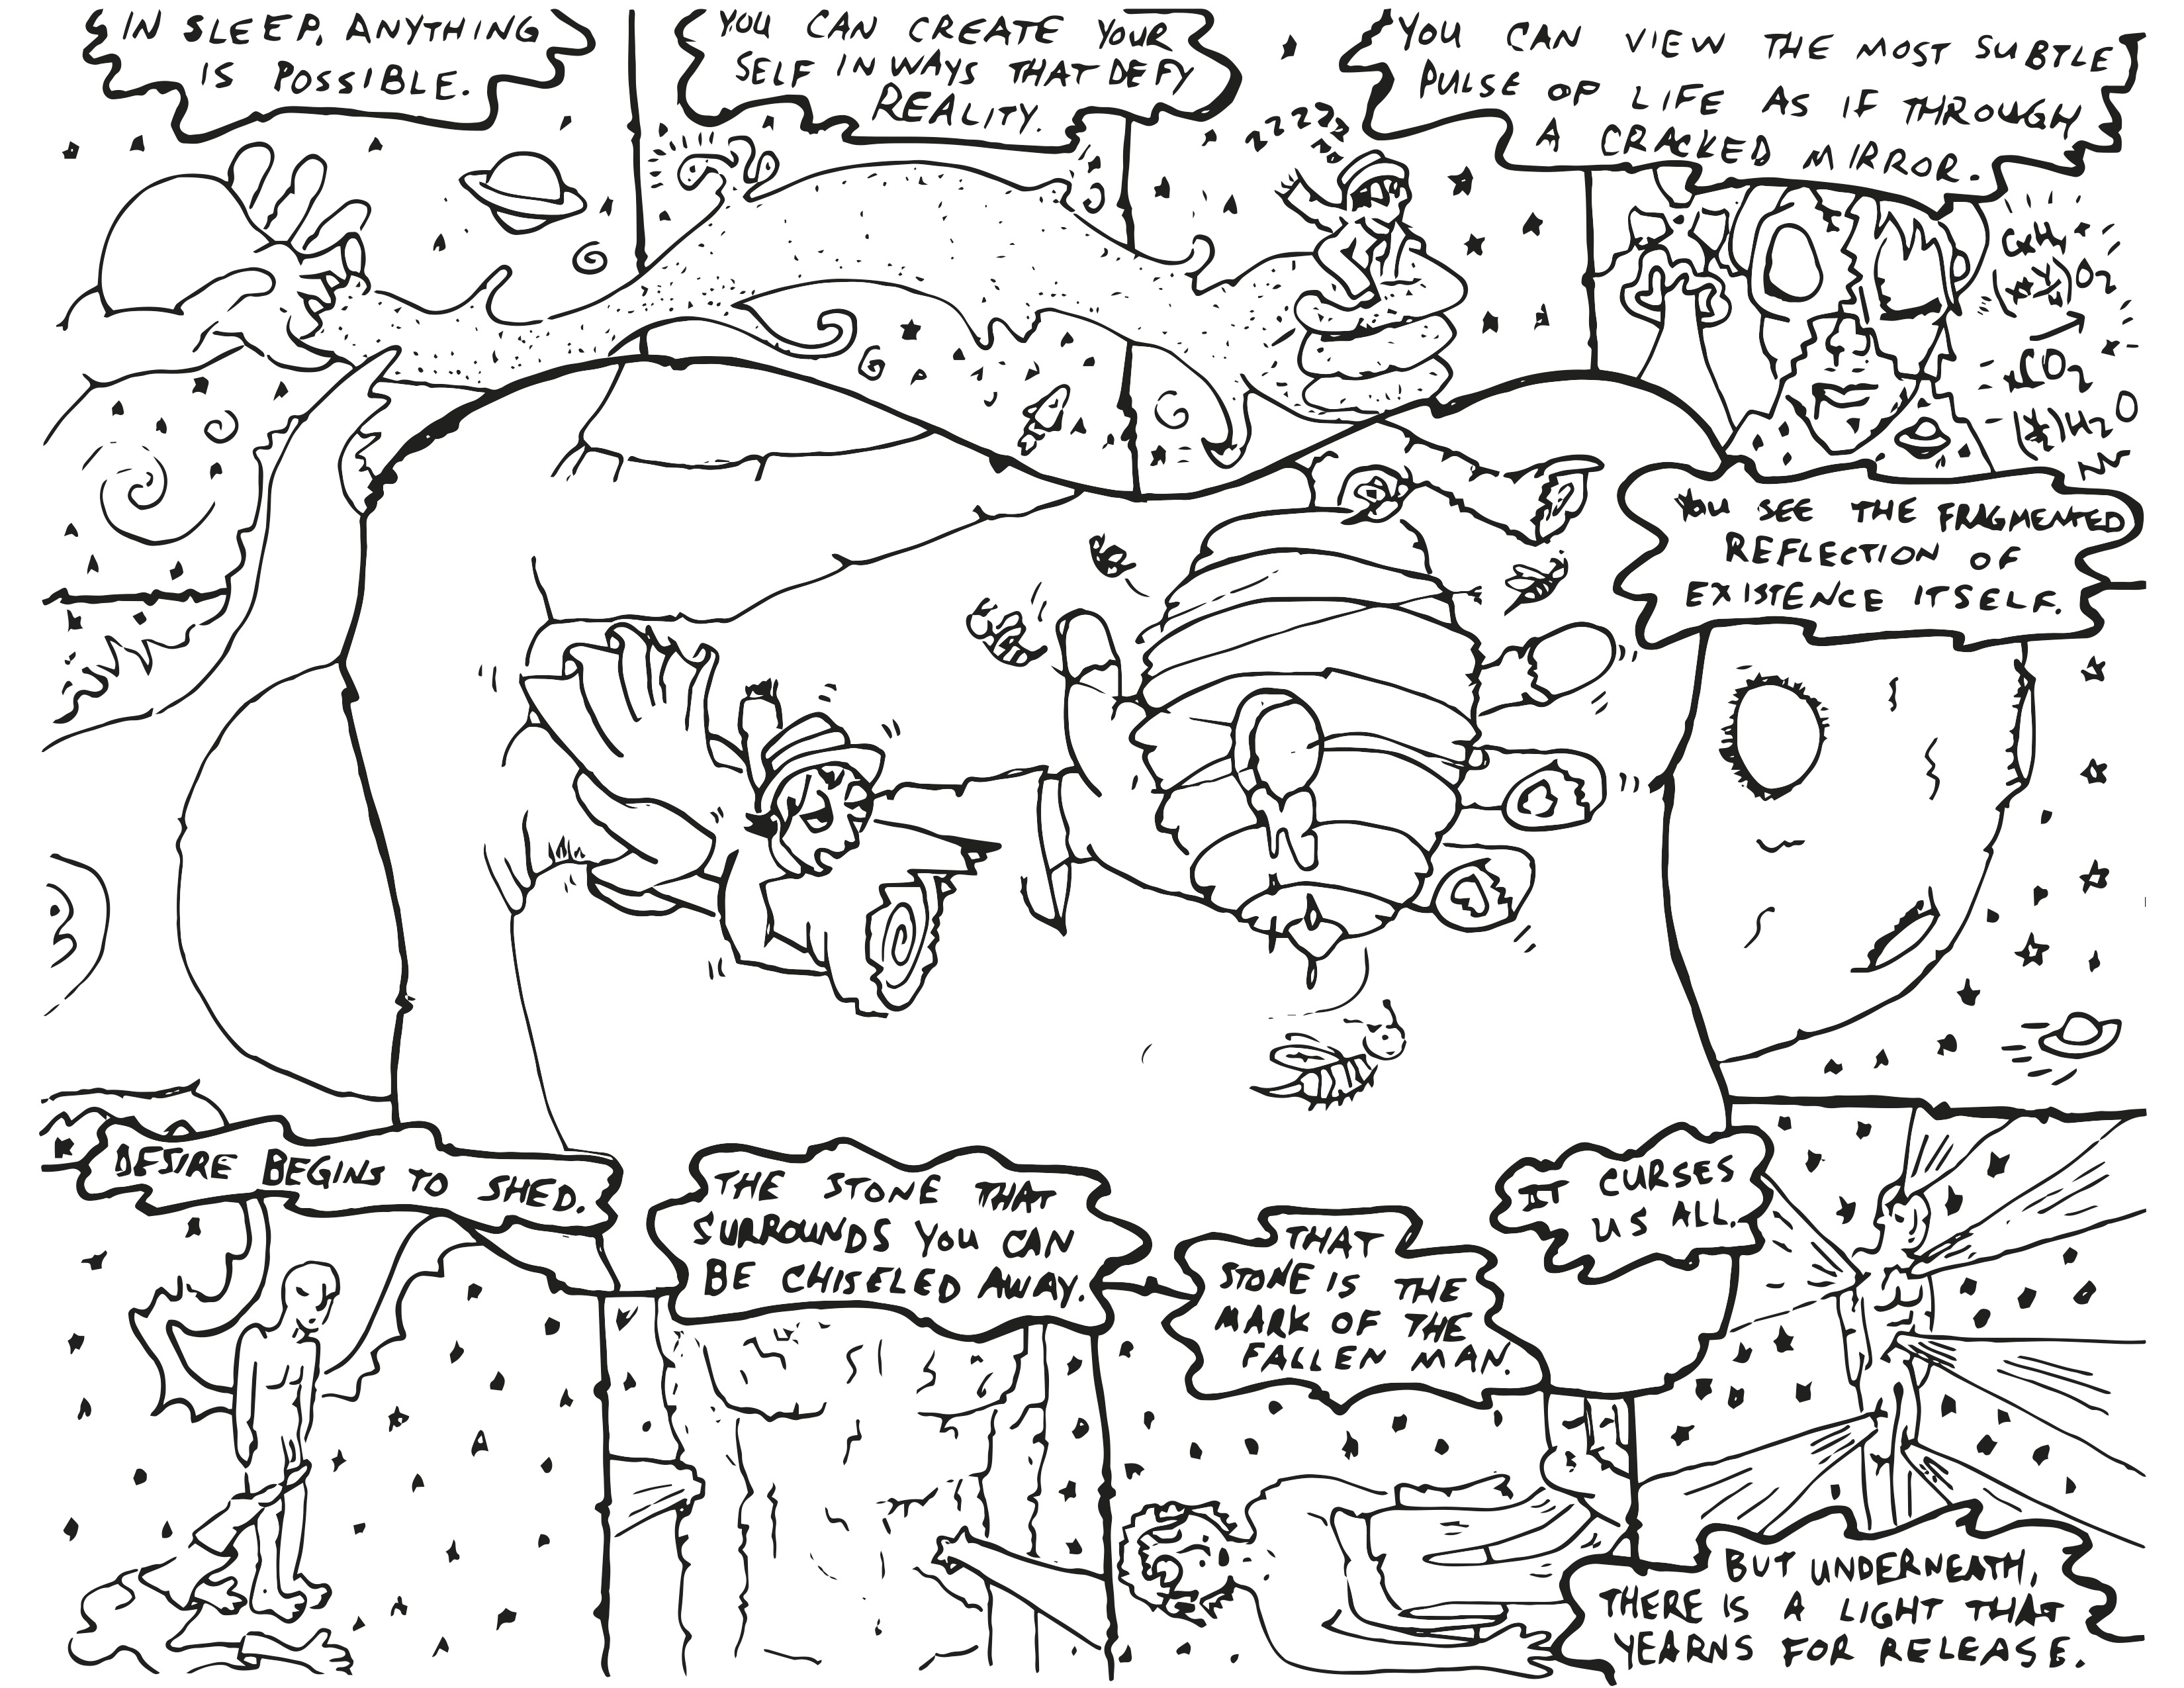 IN SLEEP, ANYTHING
IS POSSIBLE.
YOU CAN CREATE YOUR
SELF IN WAYS THAT DEFY
REALITY.
YOU CAN VIEW THE MOST SUBTLE
PULSE OF LIFE AS IF THROUGH
A CRACKED MIRROR.
zzzzz
CO2
H2O
YOU SEE THE FRAGMENTED
REFLECTION OF
EXISTENCE ITSELF.
DESIRE BEGINS TO SHED.
THE STONE THAT
SURROUNDS YOU CAN
BE CHISELED AWAY.
THAT
STONE IS THE
MARK OF THE
FALLEN MAN.
IT CURSES
US ALL.
BUT UNDERNEATH,
THERE IS A LIGHT THAT
YEARNS FOR RELEASE.